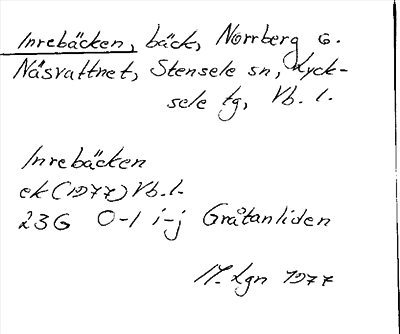 Inrebäcken, bäck, Norrberg o.
Näsvattnet, Stensele sn, Lyck-
sele tg, Vb. l.
Inrebäcken
ek (1977) Vb. l.
23G 0-1 i-j Gråtanliden
M. Lgn 1977